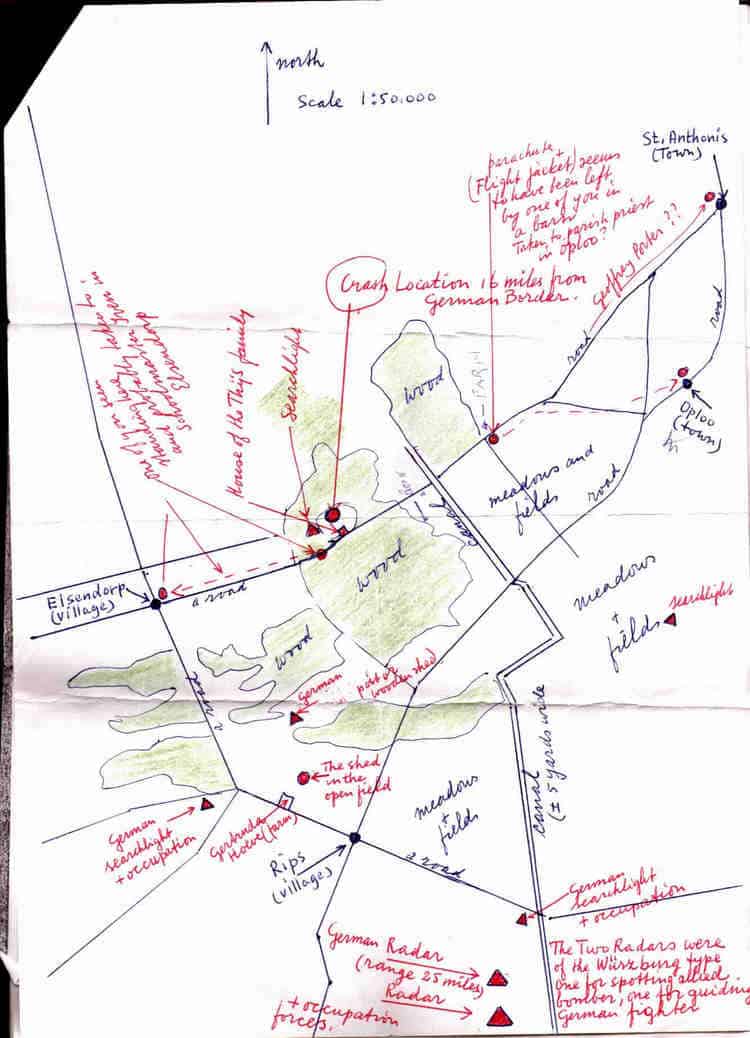 north
Scale 1:50.000
St. Anthonis
(Town)
parachute +
(Flight jacket) seems
to have been left
by one of you in
a barn
Taken to parish priest
in Oploo?
Geoffrey Porter ??
Crash Location 16 miles from
German Border.
One of you seen
and
House of the Thijs family
Searchlight
wood
FARM
road
road
Oploo
(town)
meadows and
fields
road
canal
wood
Elsendorp
(village)
a road
meadows
+
fields
searchlight
wood
German
post or
wooden shed
a road
The shed
in the
open field
canal
(± 5 yards wide)
meadows
+
fields
German
searchlight
+ occupation
Gertruda
Hoeve (farm)
Rips
(village)
a road
German
searchlight
+ occupation
German Radar
(range 25 miles)
Radar
+ occupation
forces.
The Two Radars were
of the Würzburg type
one for spotting allied
bomber, one for guiding
German fighter